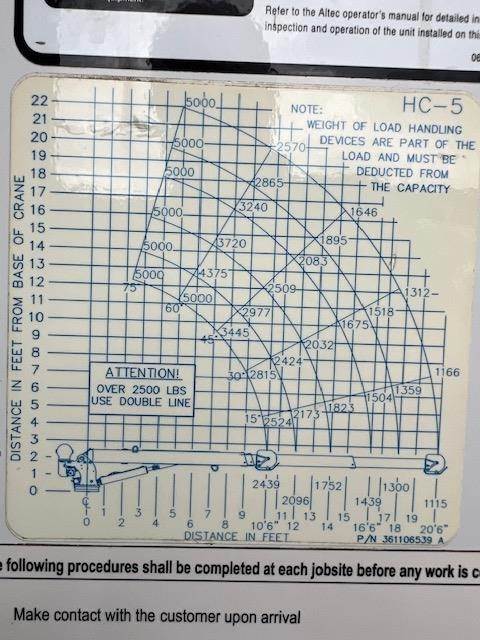 Refer to the Altec operator's manual for detailed in
inspection and operation of the unit installed on thi
HC-5
NOTE:
WEIGHT OF LOAD HANDLING
DEVICES ARE PART OF THE
LOAD AND MUST BE
DEDUCTED FROM
THE CAPACITY
DISTANCE IN FEET FROM BASE OF CRANE
22
21
20
19
18
17
16
15
14
13
12
11
10
9
8
7
6
5
4
3
2
1
0
5000 2570 1646 1312 1166
5000 2865 1895 1518 1359
5000 3240 2083 1675 1504
5000 3720 2509 2032 1823
5000 4375 2977 2424 2173
5000 5000 3445 2815 2524
75°
60°
45°
30°
15°
ATTENTION!
OVER 2500 LBS
USE DOUBLE LINE
2439 1752 1300
2096 1439 1115
¢
1 3 5 7 9 11 13 15 17 19
0 2 4 6 8 10'6" 12 14 16'6" 18 20'6"
DISTANCE IN FEET
P/N 361106539 A
following procedures shall be completed at each jobsite before any work is c
Make contact with the customer upon arrival